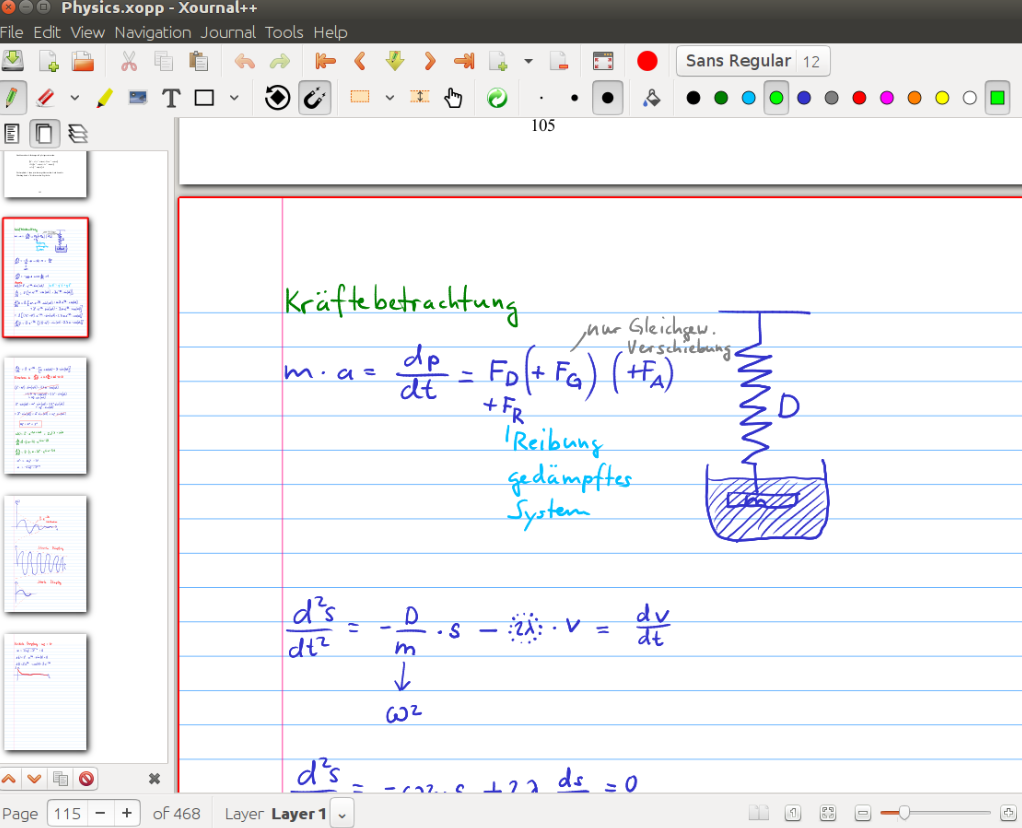 Physics.xopp - Xournal++
File Edit View Navigation Journal Tools Help
Sans Regular 12
T
105
Kräftebetrachtung
nur Gleichgew.
Verschiebung
m · a = dp/dt = F_D (+ F_G) (+F_A)
+F_R
D
Reibung
gedämpftes
System
d²s/dt² = - D/m · s - 2λ · v = dv/dt
↓
ω²
d²s = -ω² · s + 2λ ds = 0
Page 115 - + of 468 Layer Layer 1